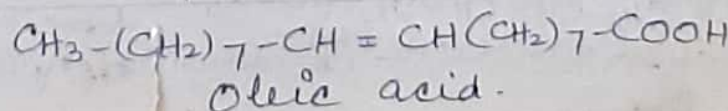 CH3-(CH2)7-CH = CH(CH2)7-COOH
Oleic acid.